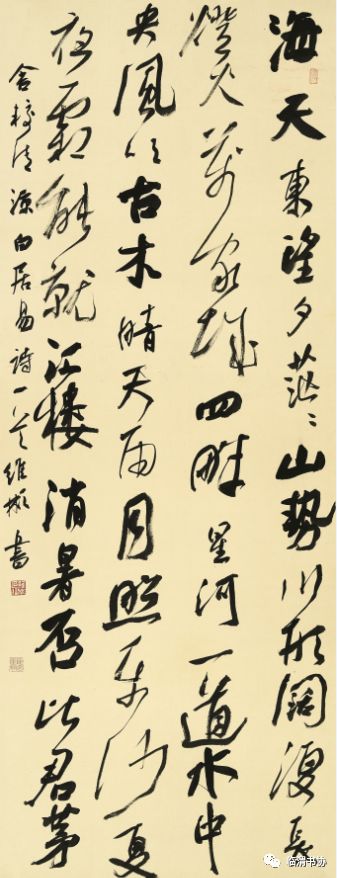 海天東望夕茫〻山勢川形闊復長
燈火萬家城四畔星河一道水中
央風吹古木晴天雨月照平沙夏
夜霜能就江樓消暑否比君茅
舍校清涼白居易詩一首維書
临渭书协